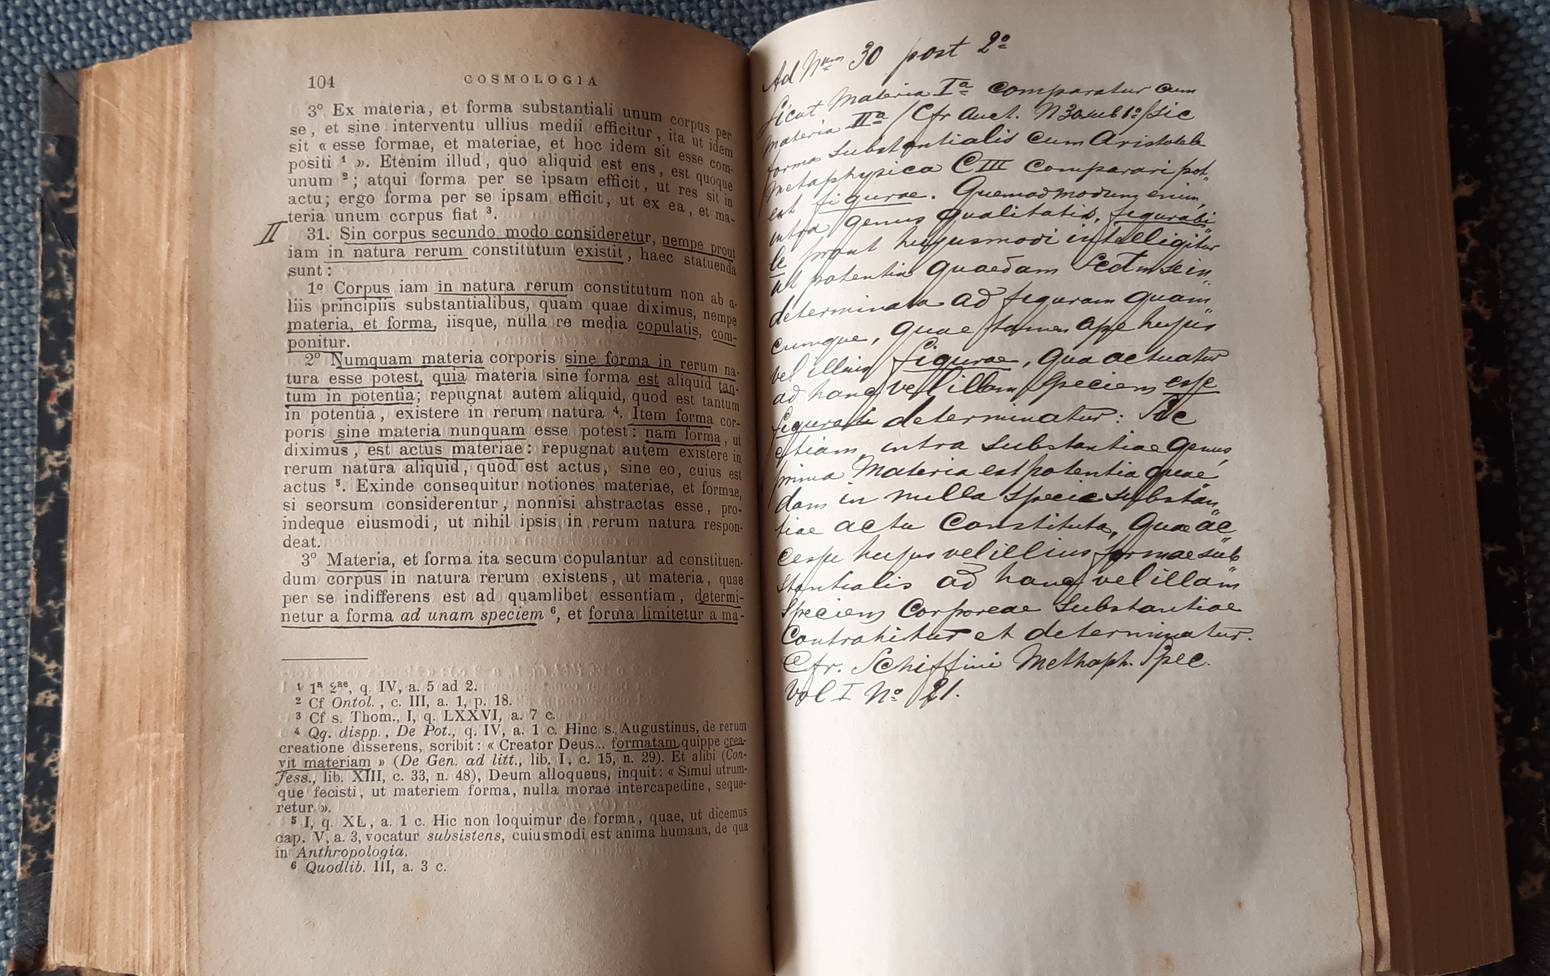 104 COSMOLOGIA
3º Ex materia, et forma substantiali unum corpus per
se, et sine interventu ullius medii efficitur, ita ut idem
sit « esse formae, et materiae, et hoc idem sit esse com-
positi ¹ ». Etenim illud, quo aliquid est ens, est quoque
unum ²; atqui forma per se ipsam efficit, ut res sit in
actu; ergo forma per se ipsam efficit, ut ex ea, et ma-
teria unum corpus fiat ³.
II 31. Sin corpus secundo modo consideretur, nempe prout
iam in natura rerum constitutum existit, haec statuenda
sunt:
1º Corpus iam in natura rerum constitutum non ab a-
liis principiis substantialibus, quam quae diximus, nempe
materia, et forma, iisque, nulla re media copulatis, com-
ponitur.
2º Numquam materia corporis sine forma in rerum na-
tura esse potest, quia materia sine forma est aliquid tan-
tum in potentia; repugnat autem aliquid, quod est tantum
in potentia, existere in rerum natura ⁴. Item forma cor-
poris sine materia nunquam esse potest: nam forma, ut
diximus, est actus materiae: repugnat autem existere in
rerum natura aliquid, quod est actus, sine eo, cuius est
actus ⁵. Exinde consequitur notiones materiae, et formae,
si seorsum considerentur, nonnisi abstractas esse, pro-
indeque eiusmodi, ut nihil ipsis in rerum natura respon-
deat.
3º Materia, et forma ita secum copulantur ad constituen-
dum corpus in natura rerum existens, ut materia, quae
per se indifferens est ad quamlibet essentiam, determi-
netur a forma ad unam speciem ⁶, et forma limitetur a ma-
¹ 1ª 2ªᵉ, q. IV, a. 5 ad 2.
² Cf Ontol., c. III, a. 1, p. 18.
³ Cf s. Thom., I, q. LXXVI, a. 7 c.
⁴ Qq. dispp., De Pot., q. IV, a. 1 c. Hinc s. Augustinus, de rerum
creatione disserens, scribit: « Creator Deus... formatam quippe crea-
vit materiam » (De Gen. ad litt., lib. I, c. 15, n. 29). Et alibi (Con-
fess., lib. XIII, c. 33, n. 48), Deum alloquens, inquit: « Simul utrum-
que fecisti, ut materiem forma, nulla morae intercapedine, seque-
retur ».
⁵ I, q. XL, a. 1 c. Hic non loquimur de forma, quae, ut dicemus
cap. V, a. 3, vocatur subsistens, cuiusmodi est anima humana, de qua
in Anthropologia.
⁶ Quodlib. III, a. 3 c.
Ad Num 30 post 2º
Sicut Materia Iª comparatur cum
materia IIª /Cfr Auct. N 30 sub 1º/ Sic
forma substantialis cum Aristotele
metaphysica C III comparari pot-
est figurae. Quemadmodum enim,
intra genus qualitatis, figurabi-
le prout hujusmodi intelligitur
ut potentia quaedam in-
determinata ad figuram quam-
cumque, quae tamen ope hujus
vel illius figurae, qua actuatur
ad hanc vel illam speciem esse
determinatur: Sic
etiam, intra substantiae genus,
prima Materia est potentia quae-
dam in nulla specie substan-
tiae actu constituta, quae ac-
cessu hujus vel illius formae sub-
stantialis ad hanc vel illam
speciem corporeae substantiae
contrahitur et determinatur.
Cfr. Schiffini Methaph. Spec.
vol I Nº 21.